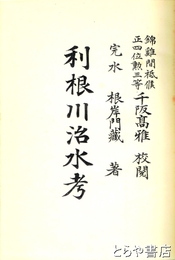 錦雞間祗候
正四位勲三等 千阪高雅 校閲
完水 根岸門藏 著
利根川治水考
とらや書店